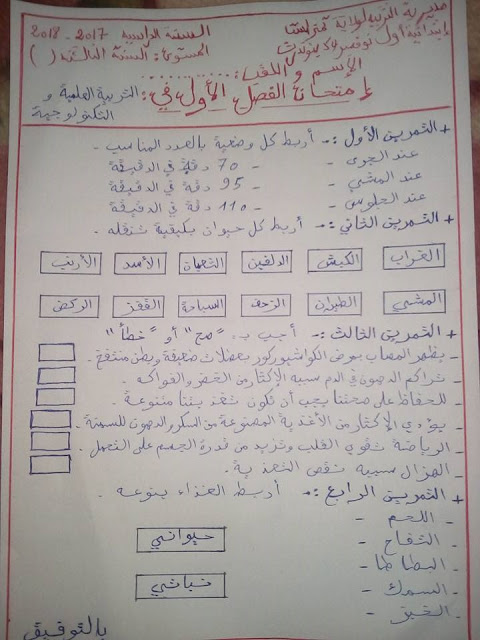 مديرية التربية لولاية تمنراست
السنة الدراسية 2017 - 2018
إبتدائية أول نوفمبر
المستوى: السنة الثالثة ( )
الإسم و اللقب: ..........
إمتحان الفصل الأول في: التربية العلمية و التكنولوجية
+ التمرين الأول :- أربط كل وضعية بالعدد المناسب.
عند الجري - - 70 دقة في الدقيقة
عند المشي - - 95 دقة في الدقيقة
عند الجلوس - - 110 دقة في الدقيقة
+ التمرين الثاني :- أربط كل حيوان بكيفية تنقله.
الغراب الكبش الدلفين الثعبان الأسد الأرنب
المشي الطيران الزحف السباحة القفز الركض
+ التمرين الثالث :- أجب بـ "صح" أو "خطأ"
- يظهر المصاب بمرض الكواشيوركور بعضلات ضعيفة وبطن منتفخ.
- تراكم الدهون في الدم سببه الإكثار من الخضر والفواكه.
- للحفاظ على صحتنا يجب أن تكون تغذيتنا متنوعة.
- يؤدي الإكثار من الأغذية المصنوعة من السكر و الدهون للسمنة.
- الرياضة تقوي القلب وتزيد من قدرة الجسم على التحمل.
- الهزال سببه نقص التغذية.
+ التمرين الرابع :- أربط الغذاء بنوعه.
- اللحم
- التفاح
حيواني
- البطاطا
- السمك
نباتي
- الخبز
بالتوفيق